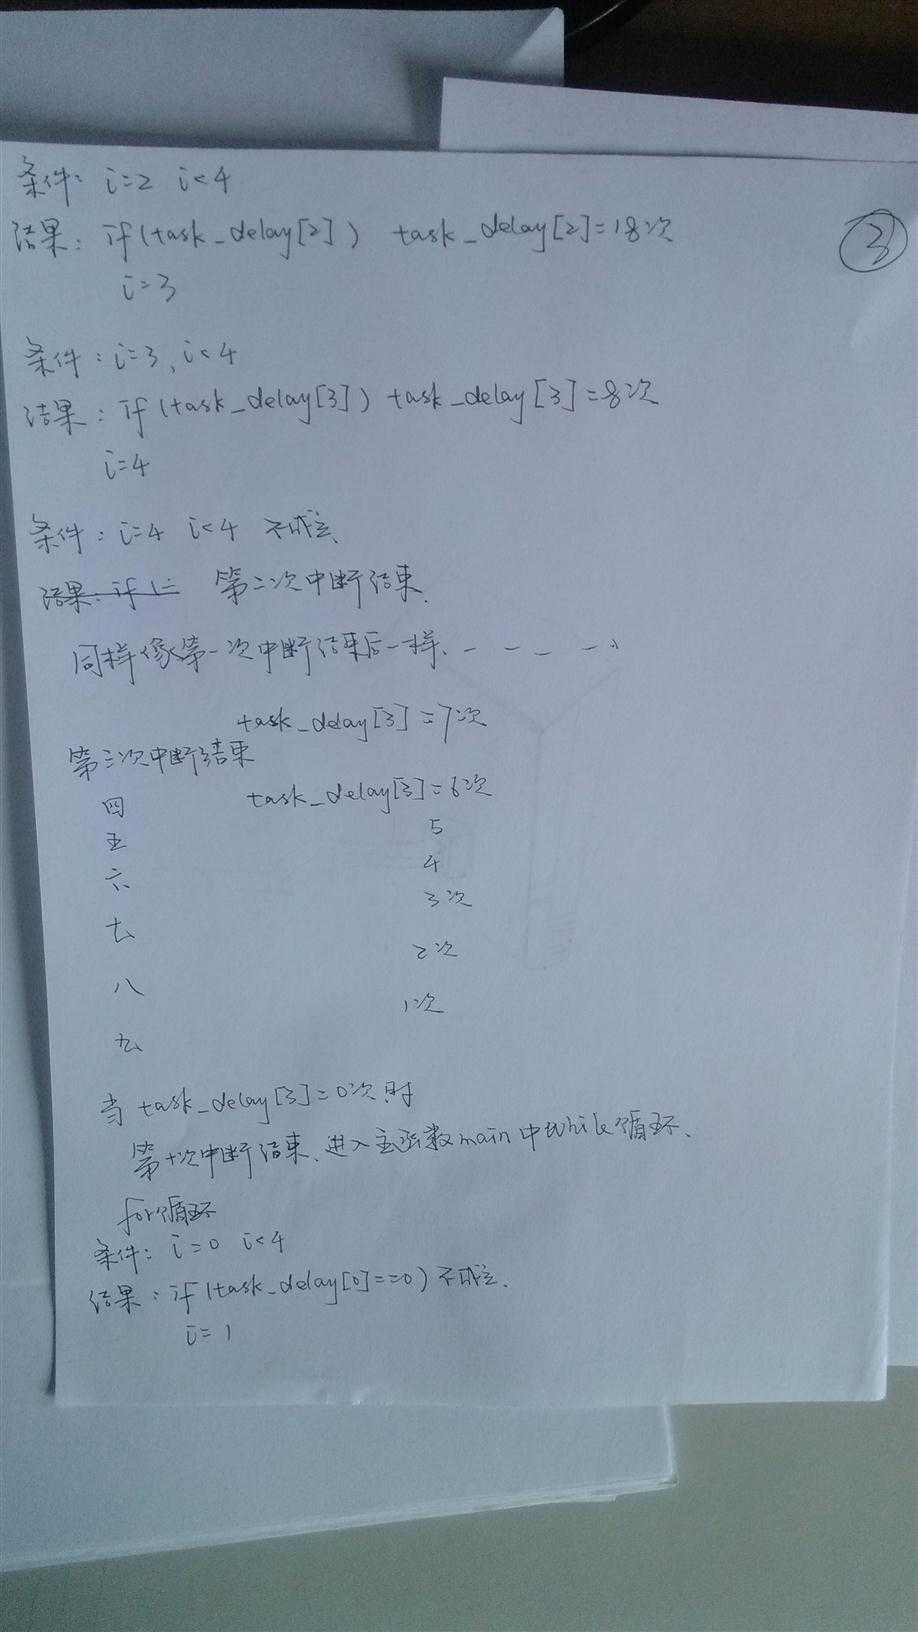 条件: i=2 i<4
结果: if(task_delay[2]) task_delay[2]=18次
③
i=3
条件: i=3, i<4
结果: if(task_delay[3]) task_delay[3]=8次
i=4
条件: i=4 i<4 不成立、
结果: if i= 第二次中断结束.
同样像第一次中断结束后一样、— — — — 、
task_delay[3]=7次
第三次中断结束
四 task_delay[3]=6次
五 5
六 4
3次
七
2次
八
1次
九
当task_delay[3]=0次时
第十次中断结束.进入主函数main中while循环、
for循环
条件: i=0 i<4
结果: if(task_delay[0]==0)不成立.
i=1